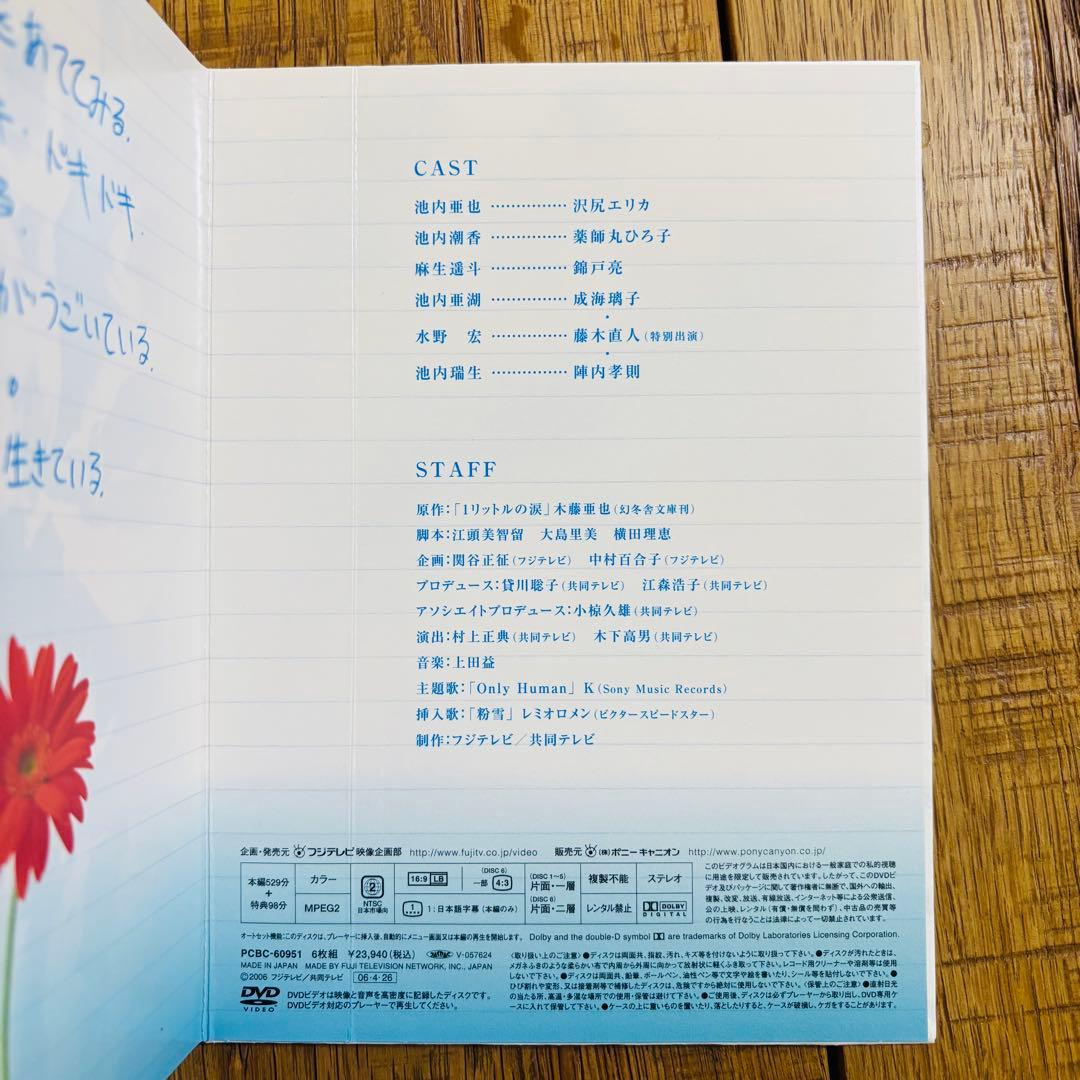 あててみる.
ドキドキ.
うごいている.
生きている.
CAST
池内亜也 …………… 沢尻エリカ
池内潮香 …………… 薬師丸ひろ子
麻生遥斗 …………… 錦戸亮
池内亜湖 …………… 成海璃子
水野　宏 …………… 藤木直人(特別出演)
池内瑞生 …………… 陣内孝則
STAFF
原作:「1リットルの涙」木藤亜也(幻冬舎文庫刊)
脚本:江頭美智留　大島里美　横田理恵
企画:関谷正征(フジテレビ)　中村百合子(フジテレビ)
プロデュース:貸川聡子(共同テレビ)　江森浩子(共同テレビ)
アソシエイトプロデュース:小椋久雄(共同テレビ)
演出:村上正典(共同テレビ)　木下高男(共同テレビ)
音楽:上田益
主題歌:「Only Human」K(Sony Music Records)
挿入歌:「粉雪」レミオロメン(ビクタースピードスター)
制作:フジテレビ／共同テレビ
企画・発売元 フジテレビ映像企画部 http://www.fujitv.co.jp/video 販売元 (株)ポニーキャニオン http://www.ponycanyon.co.jp/
本編529分 + 特典98分
カラー
MPEG2
2 NTSC 日本市場向
16:9 LB (DISC 6) 一部 4:3
1 1:日本語字幕(本編のみ)
(DISC 1〜5) 片面・一層
(DISC 6) 片面・二層
複製不能
レンタル禁止
ステレオ
DOLBY DIGITAL
このビデオグラムは日本国内における一般家庭での私的視聴
に用途を限定して販売されています。したがって、このDVDビ
デオ及びパッケージに関して著作権者に無断で、国外への輸出、
複製、改変、放送、有線放送、インターネット等による公衆送信、
公の上映、レンタル(有償・無償を問わず)、中古品の売買等
の行為を行なうことは法律によって一切禁止されています。
オートセット機能:このディスクは、プレーヤーに挿入後、自動的にメニュー画面又は本編の再生を開始します。 Dolby and the double-D symbol are trademarks of Dolby Laboratories Licensing Corporation.
PCBC-60951 6枚組 ¥23,940(税込) V-057624
MADE IN JAPAN MADE BY FUJI TELEVISION NETWORK, INC., JAPAN
©2006 フジテレビ/共同テレビ 06・4・26
DVD VIDEO
DVDビデオは映像と音声を高密度に記録したディスクです。
DVDビデオ対応のプレーヤーで再生してください。
〈取り扱い上のご注意〉●ディスクは両面共、指紋、汚れ、キズ等を付けないように取り扱って下さい。●ディスクが汚れたときは、
メガネふきのような柔らかい布で内周から外周に向かって放射状に軽くふき取って下さい。レコード用クリーナーや溶剤等は使用
しないで下さい。●ディスクは両面共、鉛筆、ボールペン、油性ペン等で文字や絵を書いたり、シール等を貼付しないで下さい。●
ひび割れや変形、又は接着剤等で補修したディスクは、危険ですから絶対に使用しないで下さい。〈保管上のご注意〉●直射日光
の当たる所、高温・多湿な場所での使用・保管は避けて下さい。●ご使用後、ディスクは必ずプレーヤーから取り出し、DVD専用ケ
ースに入れて保管して下さい。●ケースの上に重いものを置いたり、落としたりすると、ケースが破損し、ケガをすることがあります。